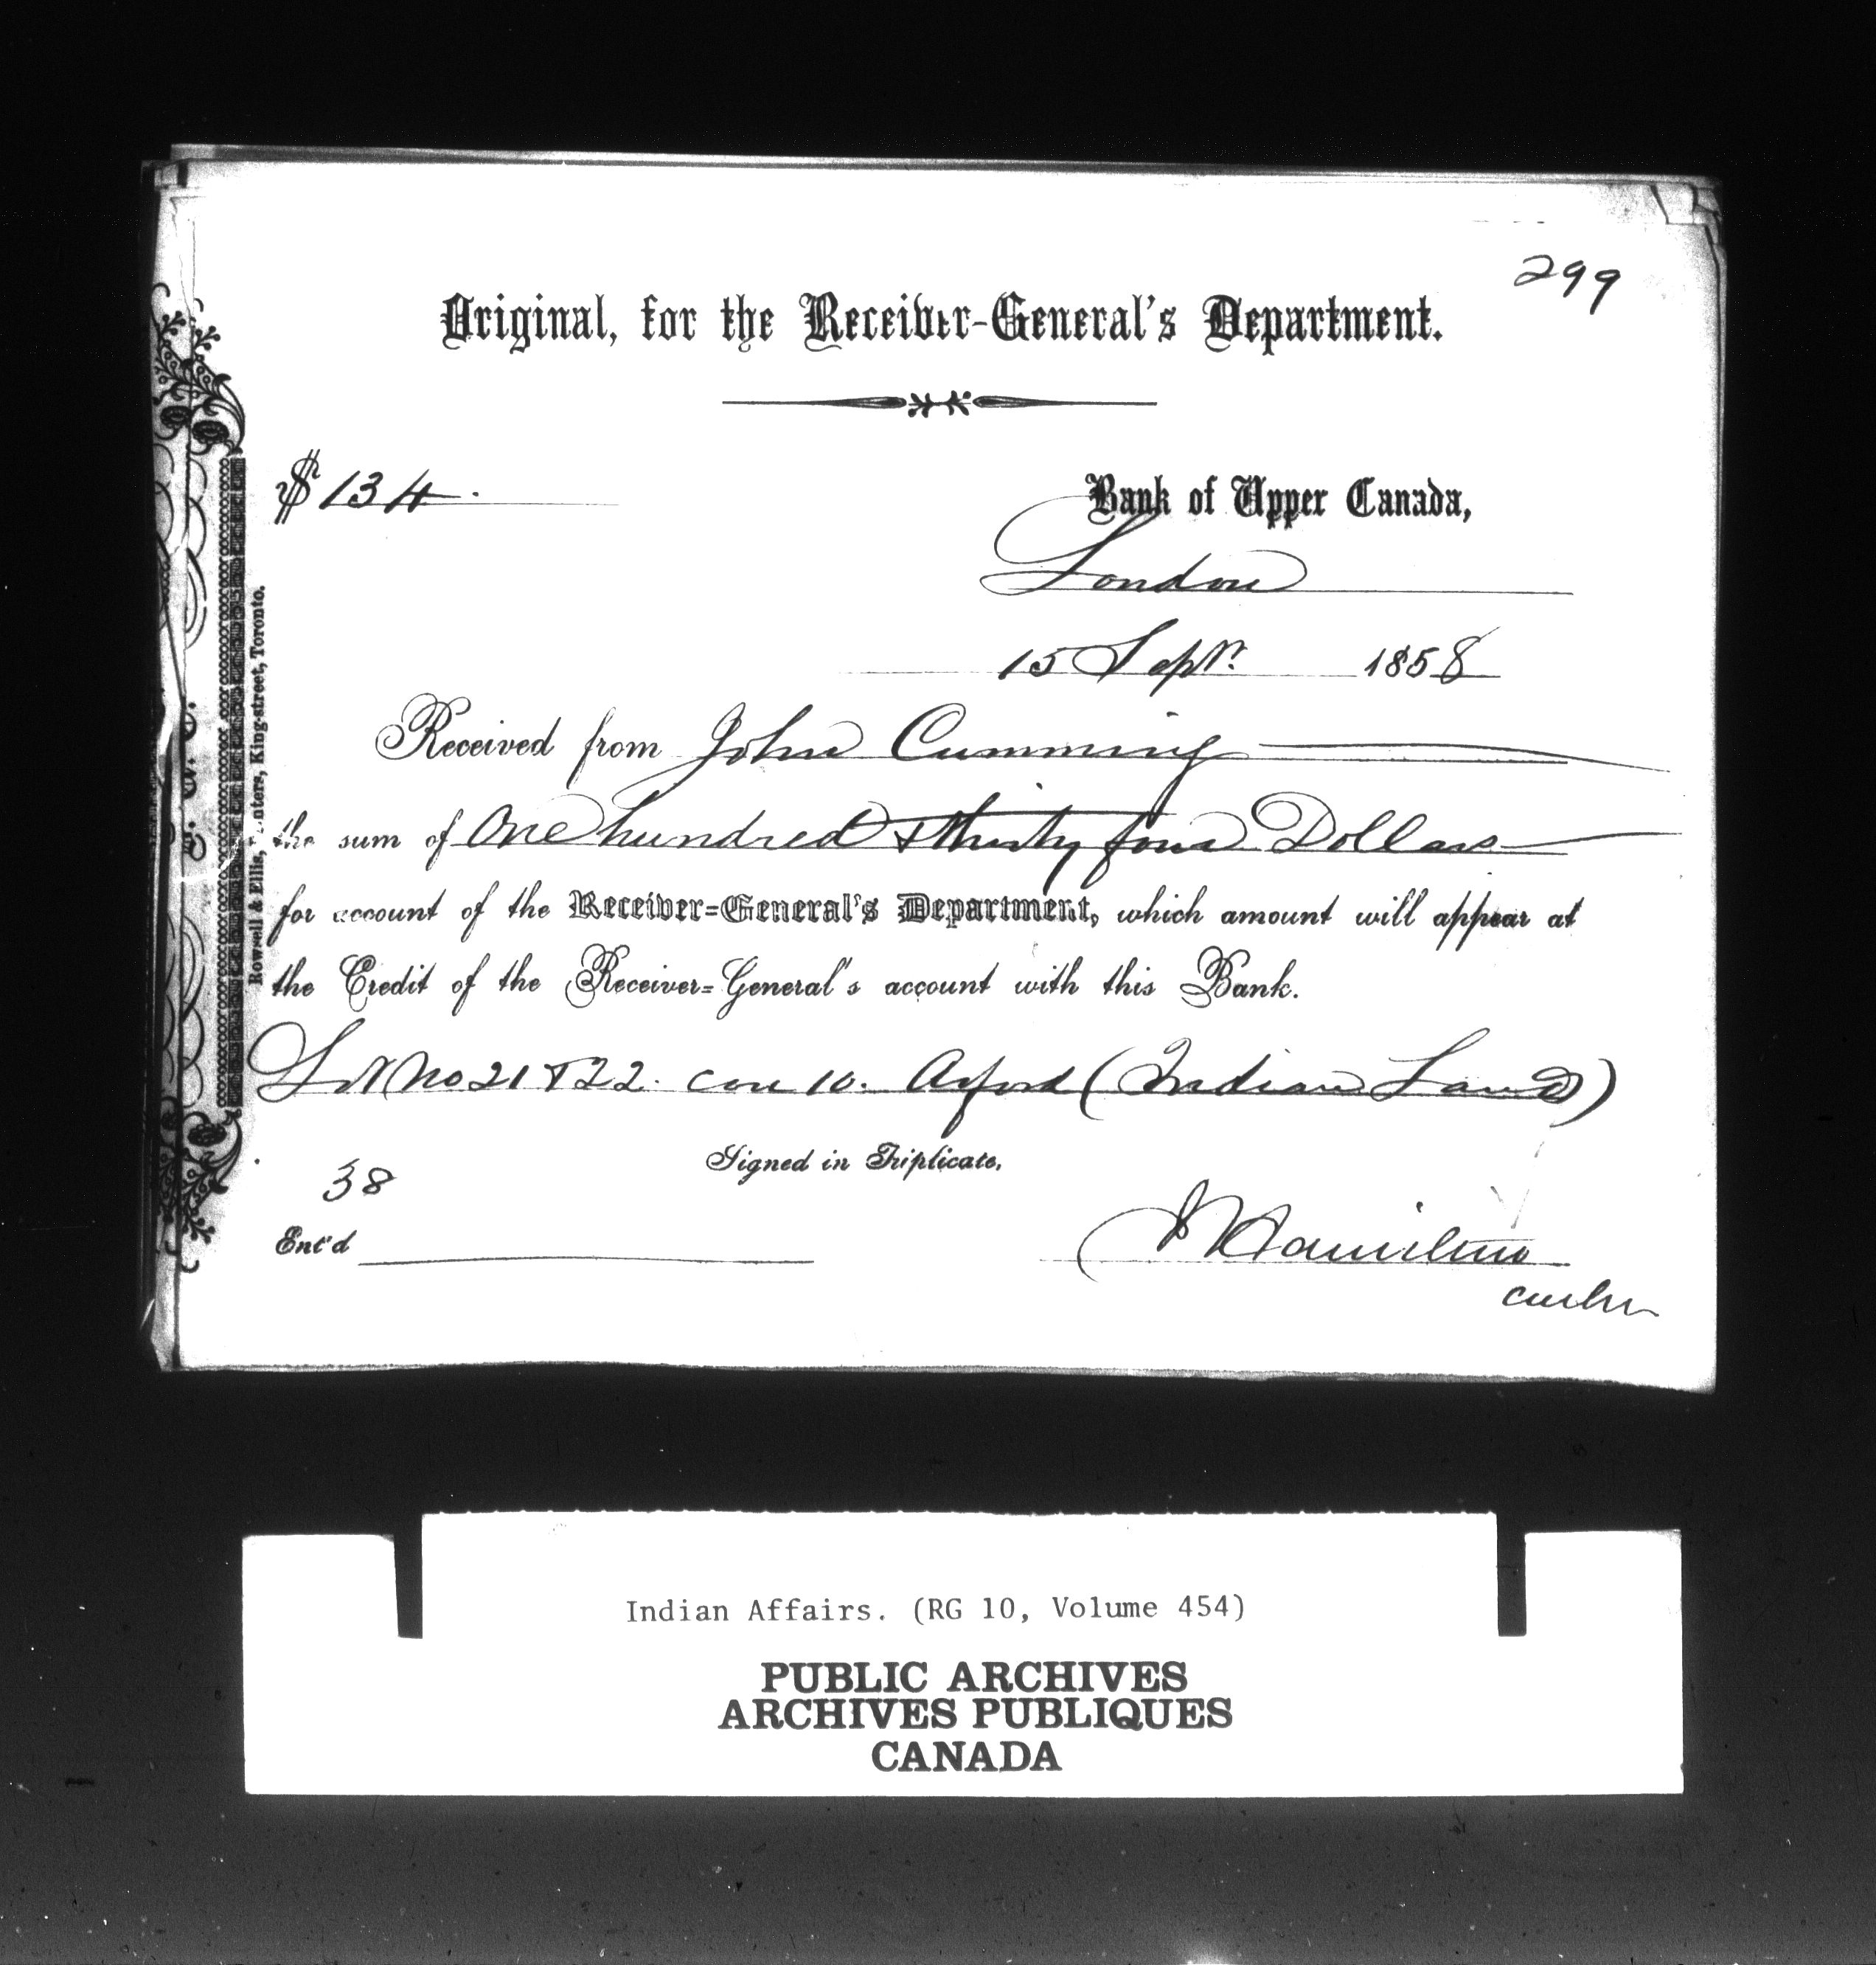 299
Original, for the Receiver-General's Department.
$ 134.
Bank of Upper Canada,
London
15 Sepr. 1858
Received from John Cumming
the sum of One hundred & thirty four Dollars
for account of the Receiver=General's Department, which amount will appear at
the Credit of the Receiver=General's account with this Bank.
Lot No 21 & 22. con 10. (Indian Land)
Signed in Triplicate.
38
Ent'd
Hamilton
Cashr
Rowsell & Ellis, Printers, King-street, Toronto.
Indian Affairs. (RG 10, Volume 454)
PUBLIC ARCHIVES
ARCHIVES PUBLIQUES
CANADA